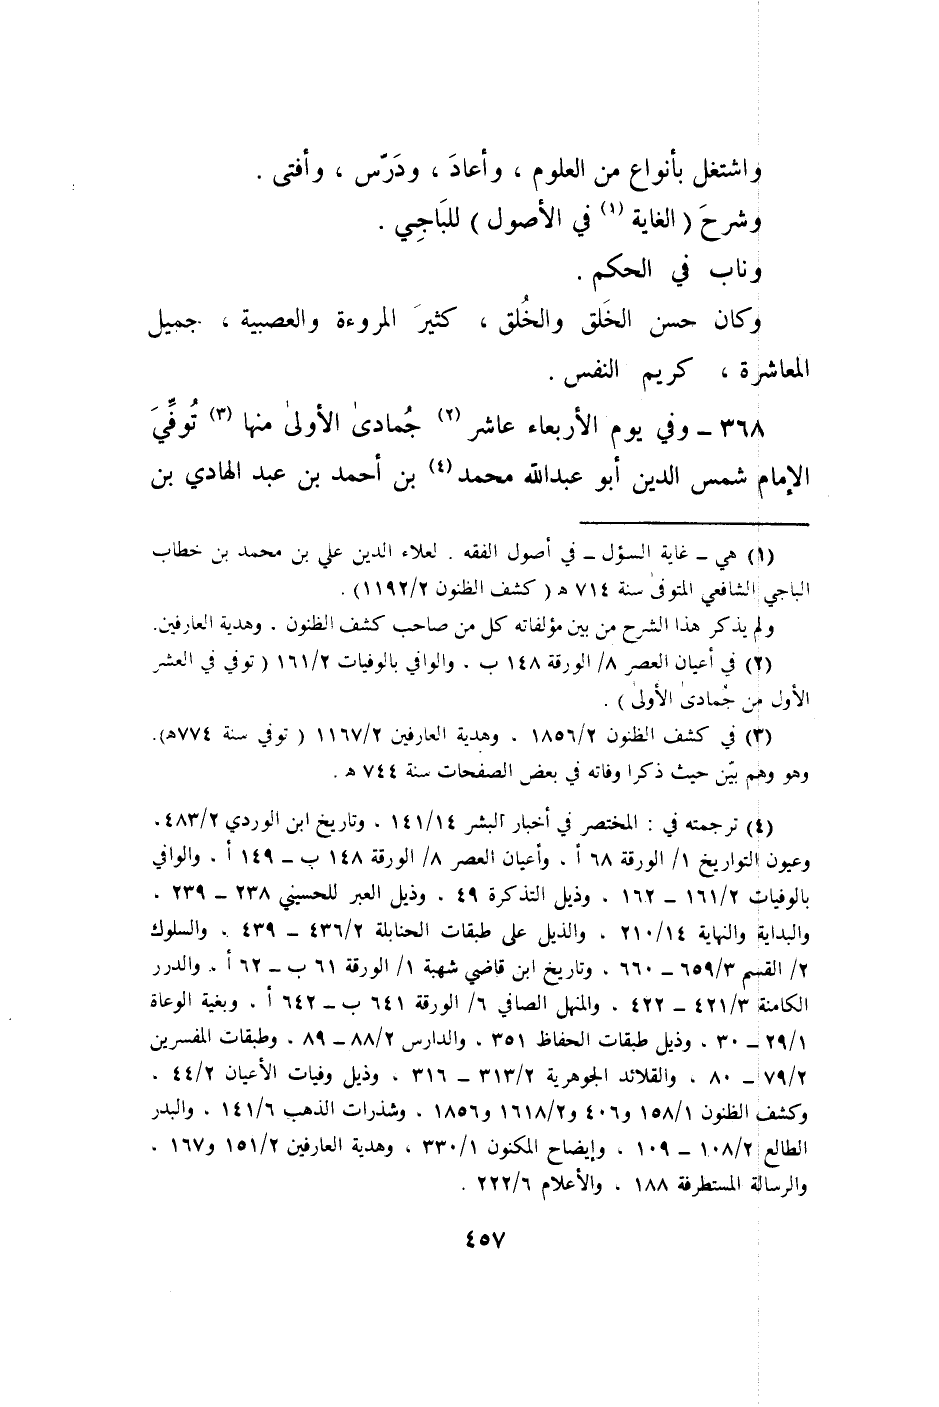 واشتغل بأنواع من العلوم ، وأعادَ ، ودَرّس ، وأفتى .
وشرحَ ( الغاية (١) في الأصول ) للبَاجِي .
وناب في الحكم .
وكان حسن الخَلق والخُلق ، كثيرَ المروءة والعصبية ، جميل
المعاشرة ، كريم النفس .
٣٦٨ ـ وفي يوم الأربعاء عاشر (٢) جُمادىٰ الأولىٰ منها (٣) تُوفِّيَ
الإمام شمس الدين أبو عبدالله محمد (٤) بن أحمد بن عبد الهادي بن
(١) هي ـ غاية السؤل ـ في أصول الفقه . لعلاء الدين علي بن محمد بن خطاب
الباجي الشافعي المتوفىٰ سنة ٧١٤ هـ ( كشف الظنون ١١٩٢/٢) .
ولم يذكر هذا الشرح من بين مؤلفاته كل من صاحب كشف الظنون . وهدية العارفين.
(٢) في أعيان العصر ٨/ الورقة ١٤٨ ب . والوافي بالوفيات ١٦١/٢ ( توفي في العشر
الأول من جُمادىٰ الأولىٰ ) .
(٣) في كشف الظنون ١٨٥٦/٢ . وهدية العارفين ١١٦٧/٢ ( توفي سنة ٧٧٤هـ).
وهو وهم بيّن حيث ذكرا وفاته في بعض الصفحات سنة ٧٤٤ هـ .
(٤) ترجمته في : المختصر في أخبار البشر ١٤١/١٤ . وتاريخ ابن الوردي ٤٨٣/٢.
وعيون التواريخ ١/ الورقة ٦٨ أ . وأعيان العصر ٨/ الورقة ١٤٨ ب ـ ١٤٩ أ . والوافي
بالوفيات ١٦١/٢ ـ ١٦٢ . وذيل التذكرة ٤٩ . وذيل العبر للحسيني ٢٣٨ ـ ٢٣٩ .
والبداية والنهاية ٢١٠/١٤ . والذيل على طبقات الحنابلة ٤٣٦/٢ ـ ٤٣٩ . والسلوك
٢/ القسم ٦٥٩/٣ ـ ٦٦٠ . وتاريخ ابن قاضي شهبة ١/ الورقة ٦١ ب ـ ٦٢ أ . والدرر
الكامنة ٤٢١/٣ ـ ٤٢٢ . والمنهل الصافي ٦/ الورقة ٦٤١ ب ـ ٦٤٢ أ . وبغية الوعاة
٢٩/١ ـ ٣٠ . وذيل طبقات الحفاظ ٣٥١ . والدارس ٨٨/٢ ـ ٨٩ . وطبقات المفسرين
٧٩/٢ ـ ٨٠ . والقلائد الجوهرية ٣١٣/٢ ـ ٣١٦ . وذيل وفيات الأعيان ٤٤/٢ .
وكشف الظنون ١٥٨/١ و٤٠٦ و١٦١٨/٢ و١٨٥٦ . وشذرات الذهب ١٤١/٦ . والبدر
الطالع ١٠٨/٢ ـ ١٠٩ . وإيضاح المكنون ٣٣٠/١ . وهدية العارفين ١٥١/٢ و١٦٧ .
والرسالة المستطرفة ١٨٨ . والأعلام ٢٢٢/٦ .
٤٥٧